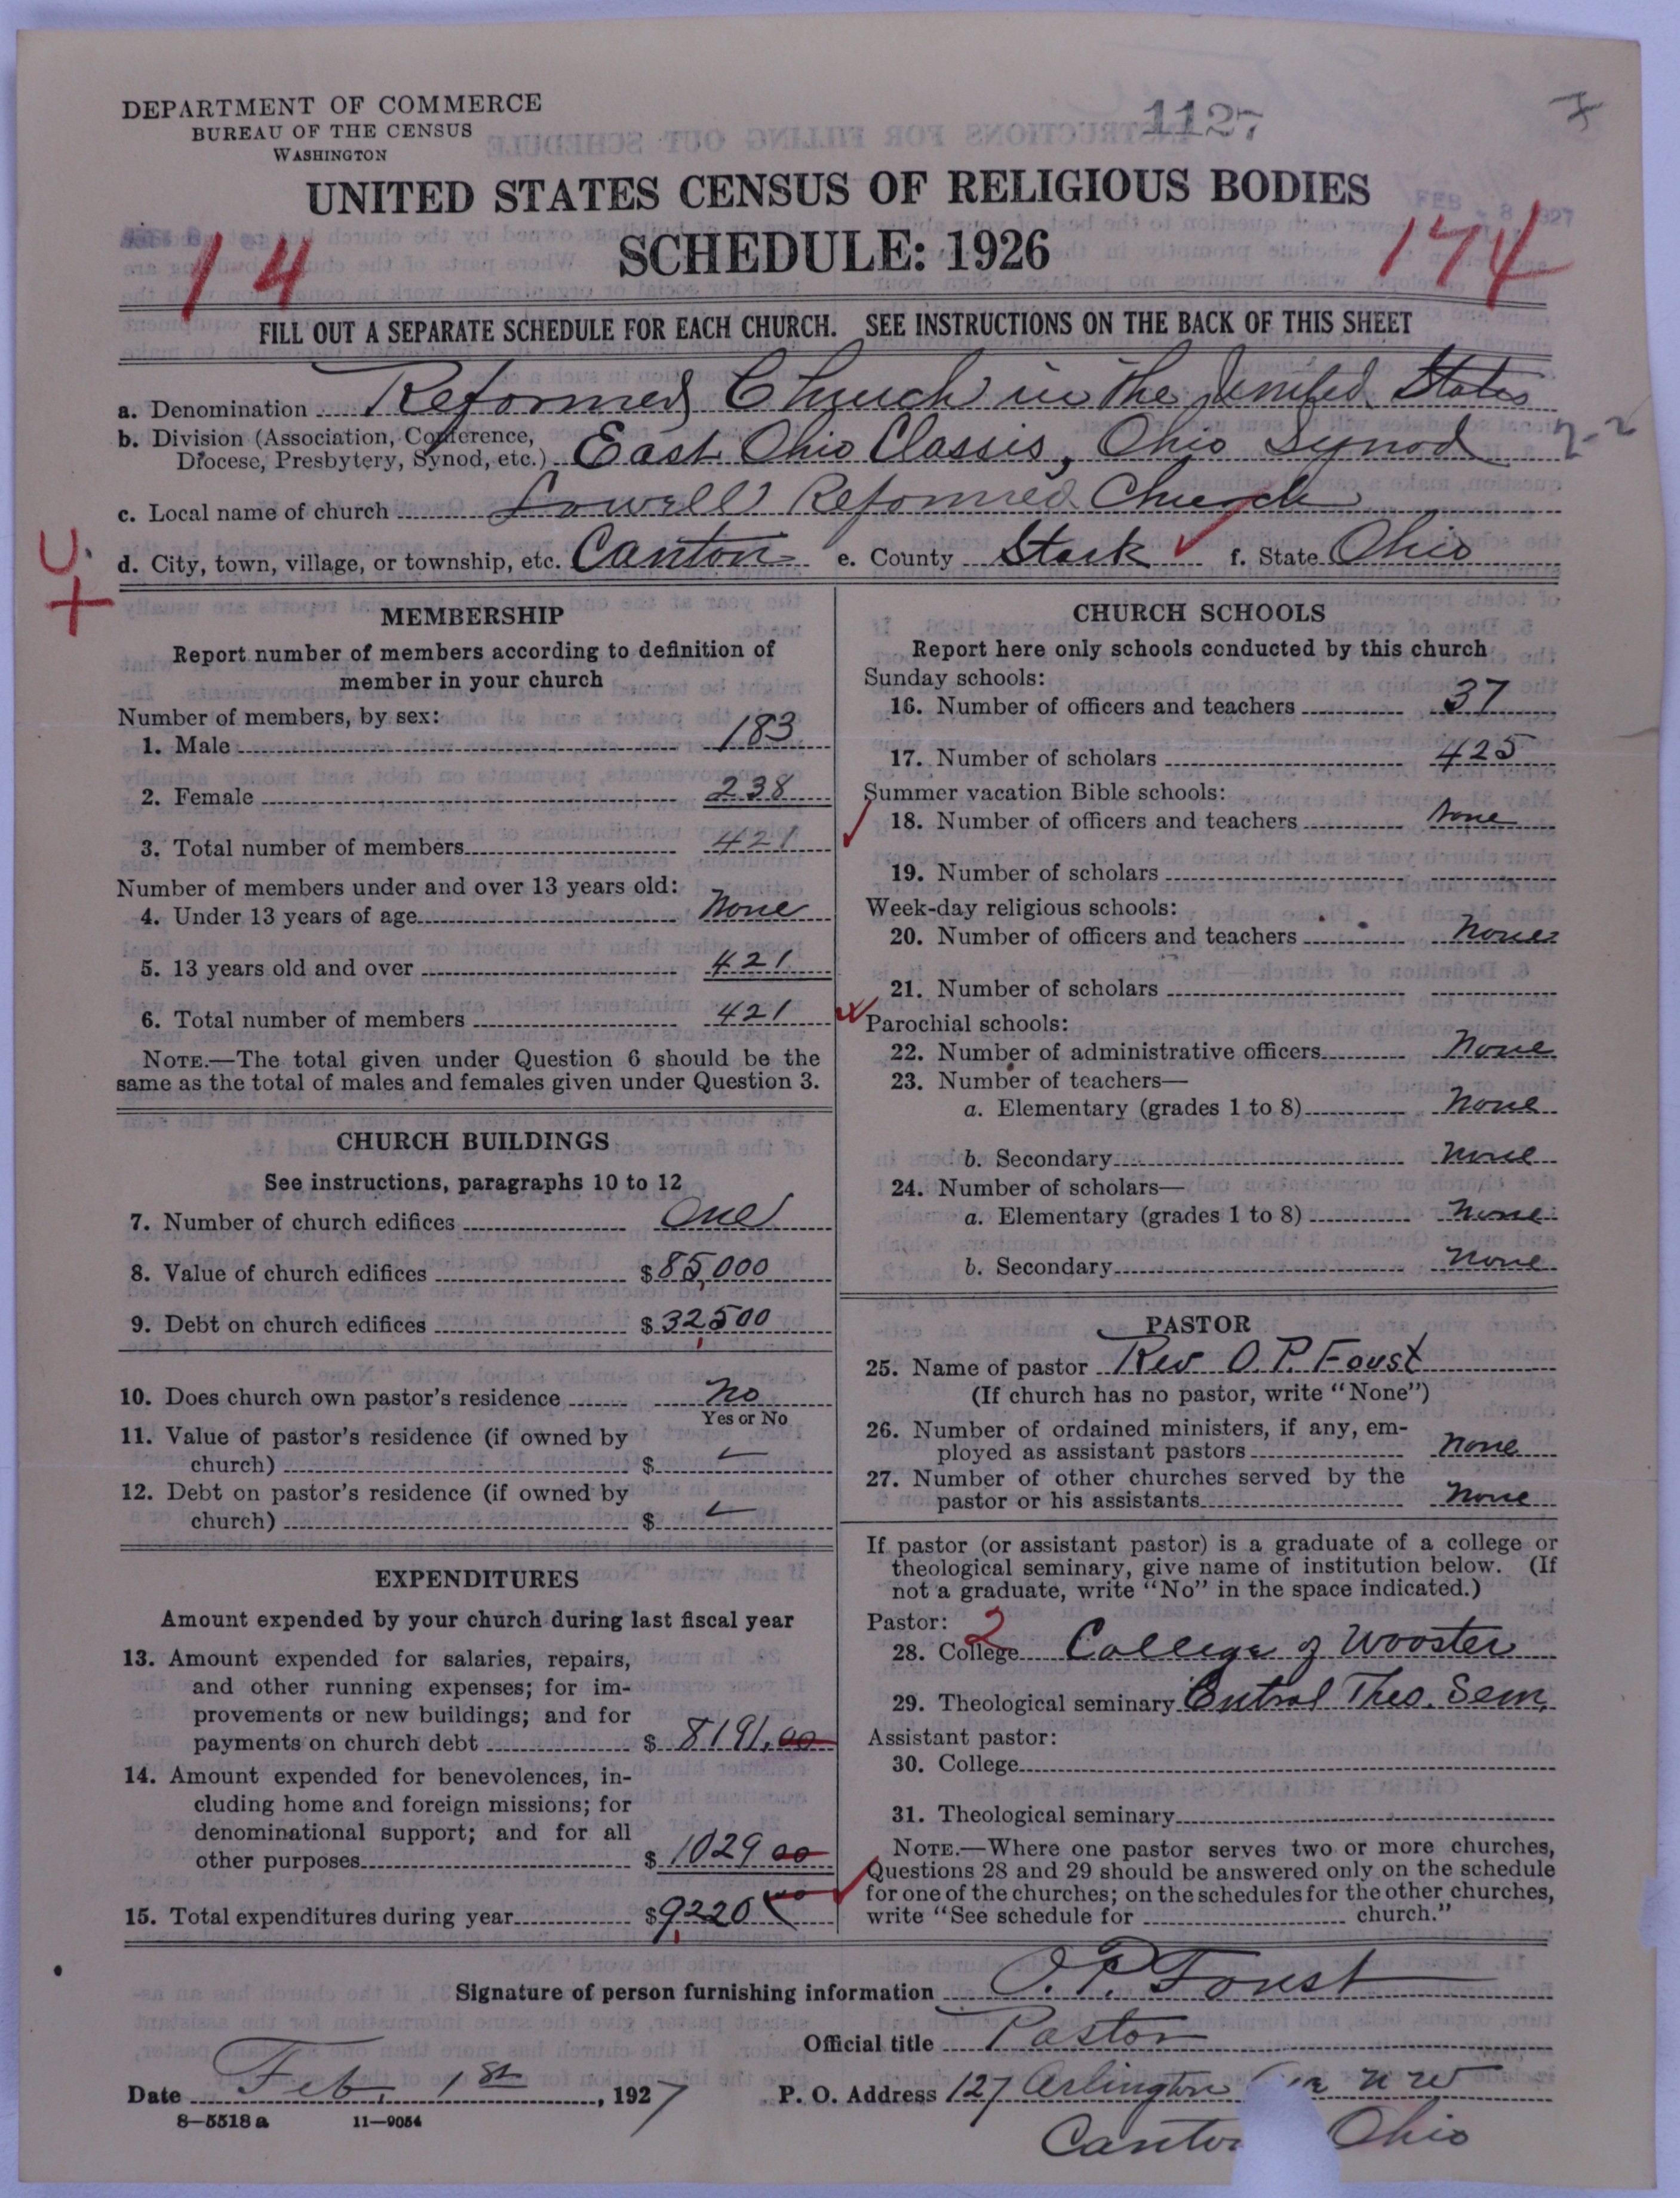 DEPARTMENT OF COMMERCE
BUREAU OF THE CENSUS
WASHINGTON
1127
UNITED STATES CENSUS OF RELIGIOUS BODIES
SCHEDULE: 1926
FEB 8 1927
14
174
FILL OUT A SEPARATE SCHEDULE FOR EACH CHURCH. SEE INSTRUCTIONS ON THE BACK OF THIS SHEET
a. Denomination Reformed Church in the United States
b. Division (Association, Conference,
Diocese, Presbytery, Synod, etc.) East Ohio Classis, Ohio Synod 2-2
c. Local name of church Lowell Reformed Church
d. City, town, village, or township, etc. Canton e. County Stark f. State Ohio
U
MEMBERSHIP
Report number of members according to definition of
member in your church
Number of members, by sex:
1. Male 183
2. Female 238
3. Total number of members 421
Number of members under and over 13 years old:
4. Under 13 years of age None
5. 13 years old and over 421
6. Total number of members 421
NOTE.—The total given under Question 6 should be the
same as the total of males and females given under Question 3.
CHURCH BUILDINGS
See instructions, paragraphs 10 to 12
7. Number of church edifices One
8. Value of church edifices $85,000
9. Debt on church edifices $32,500
10. Does church own pastor's residence No
Yes or No
11. Value of pastor's residence (if owned by
church) $
12. Debt on pastor's residence (if owned by
church) $
EXPENDITURES
Amount expended by your church during last fiscal year
13. Amount expended for salaries, repairs,
and other running expenses; for im-
provements or new buildings; and for
payments on church debt $ 8191.00
14. Amount expended for benevolences, in-
cluding home and foreign missions; for
denominational support; and for all
other purposes $ 1029 00
15. Total expenditures during year $9220 00
CHURCH SCHOOLS
Report here only schools conducted by this church
Sunday schools:
16. Number of officers and teachers 37
17. Number of scholars 425
Summer vacation Bible schools:
18. Number of officers and teachers None
19. Number of scholars
Week-day religious schools:
20. Number of officers and teachers None
21. Number of scholars
Parochial schools:
22. Number of administrative officers None
23. Number of teachers—
a. Elementary (grades 1 to 8) None
b. Secondary None
24. Number of scholars—
a. Elementary (grades 1 to 8) None
b. Secondary None
PASTOR
25. Name of pastor Rev O. P. Foust
(If church has no pastor, write "None")
26. Number of ordained ministers, if any, em-
ployed as assistant pastors None
27. Number of other churches served by the
pastor or his assistants None
If pastor (or assistant pastor) is a graduate of a college or
theological seminary, give name of institution below. (If
not a graduate, write "No" in the space indicated.)
Pastor: 2
28. College College of Wooster
29. Theological seminary Central Theo. Sem.
Assistant pastor:
30. College
31. Theological seminary
NOTE.—Where one pastor serves two or more churches,
Questions 28 and 29 should be answered only on the schedule
for one of the churches; on the schedules for the other churches,
write "See schedule for church."
Signature of person furnishing information O. P. Foust
Official title Pastor
Date Feb. 1st, 1927 P. O. Address 127 Arlington N W
8—5518 a 11—9054
Canton Ohio